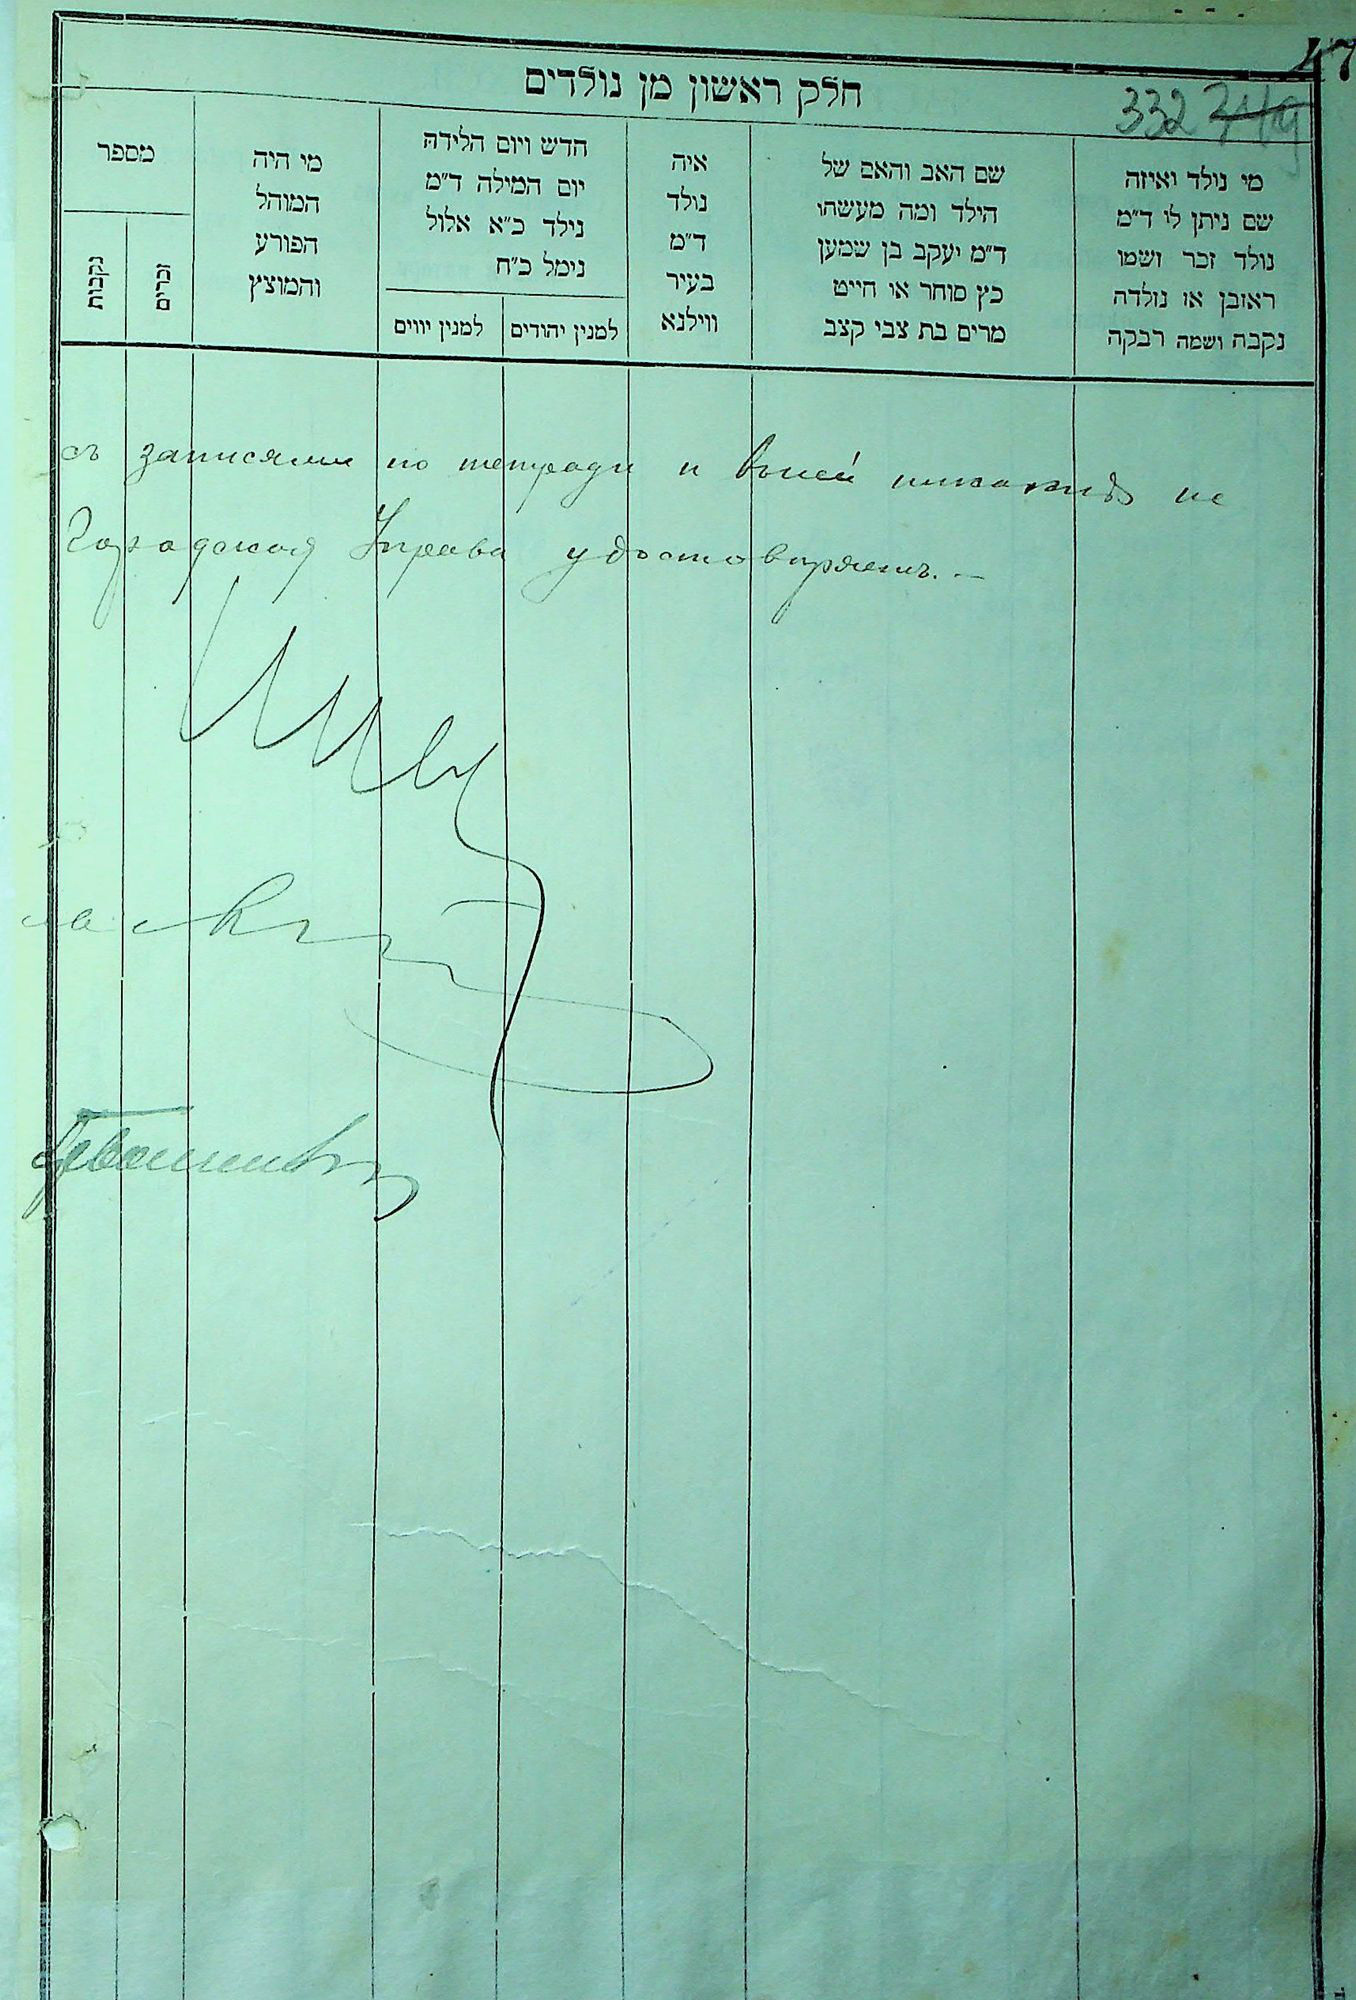 47
חלק ראשון מן נולדים
332
מי נולד ואיזה
שם ניתן לי ד"מ
נולד זכר ושמו
ראובן או נולדה
נקבה ושמה רבקה
שם האב והאם של
הילד ומה מעשהו
ד"מ יעקב בן שמעון
כץ סוחר או חייט
מרים בת צבי קצב
איה
נולד
ד"מ
בעיר
ווילנא
חדש ויום הלידה
יום המילה ד"מ
נילד כ"א אלול
נימל כ"ח
למנין יהודים
למנין יווים
מי היה
המוהל
הפורע
והמוצץ
מספר
זכרים
נקבות
съ записями по тетради и въ ней никакихъ не
Городская Управа удостовѣряетъ. —